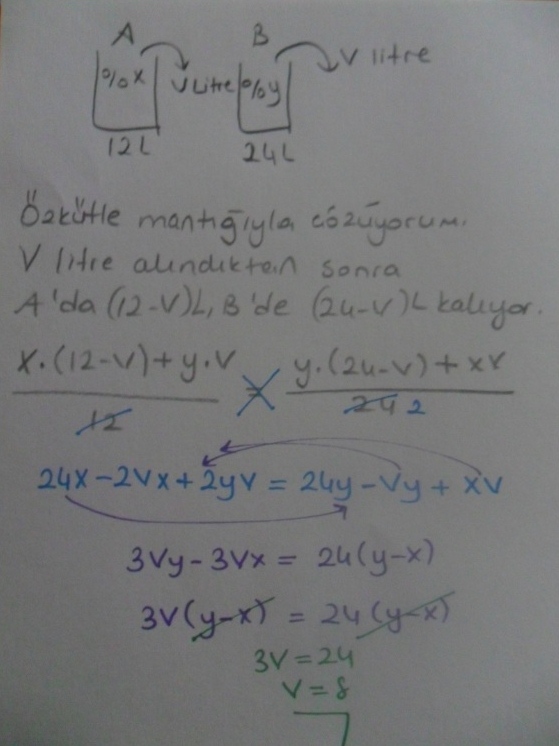 A B
%x V Litre %y V litre
12L 24L
Özkütle mantığıyla çözüyorum.
V litre alındıktan sonra
A'da (12-V)L, B'de (24-V)L kalıyor.
x.(12-V)+y.V / 12 = y.(24-V)+xV / 24 2
24x-2Vx+2yV = 24y-Vy+xV
3Vy-3Vx = 24(y-x)
3V(y-x) = 24(y-x)
3V=24
V=8